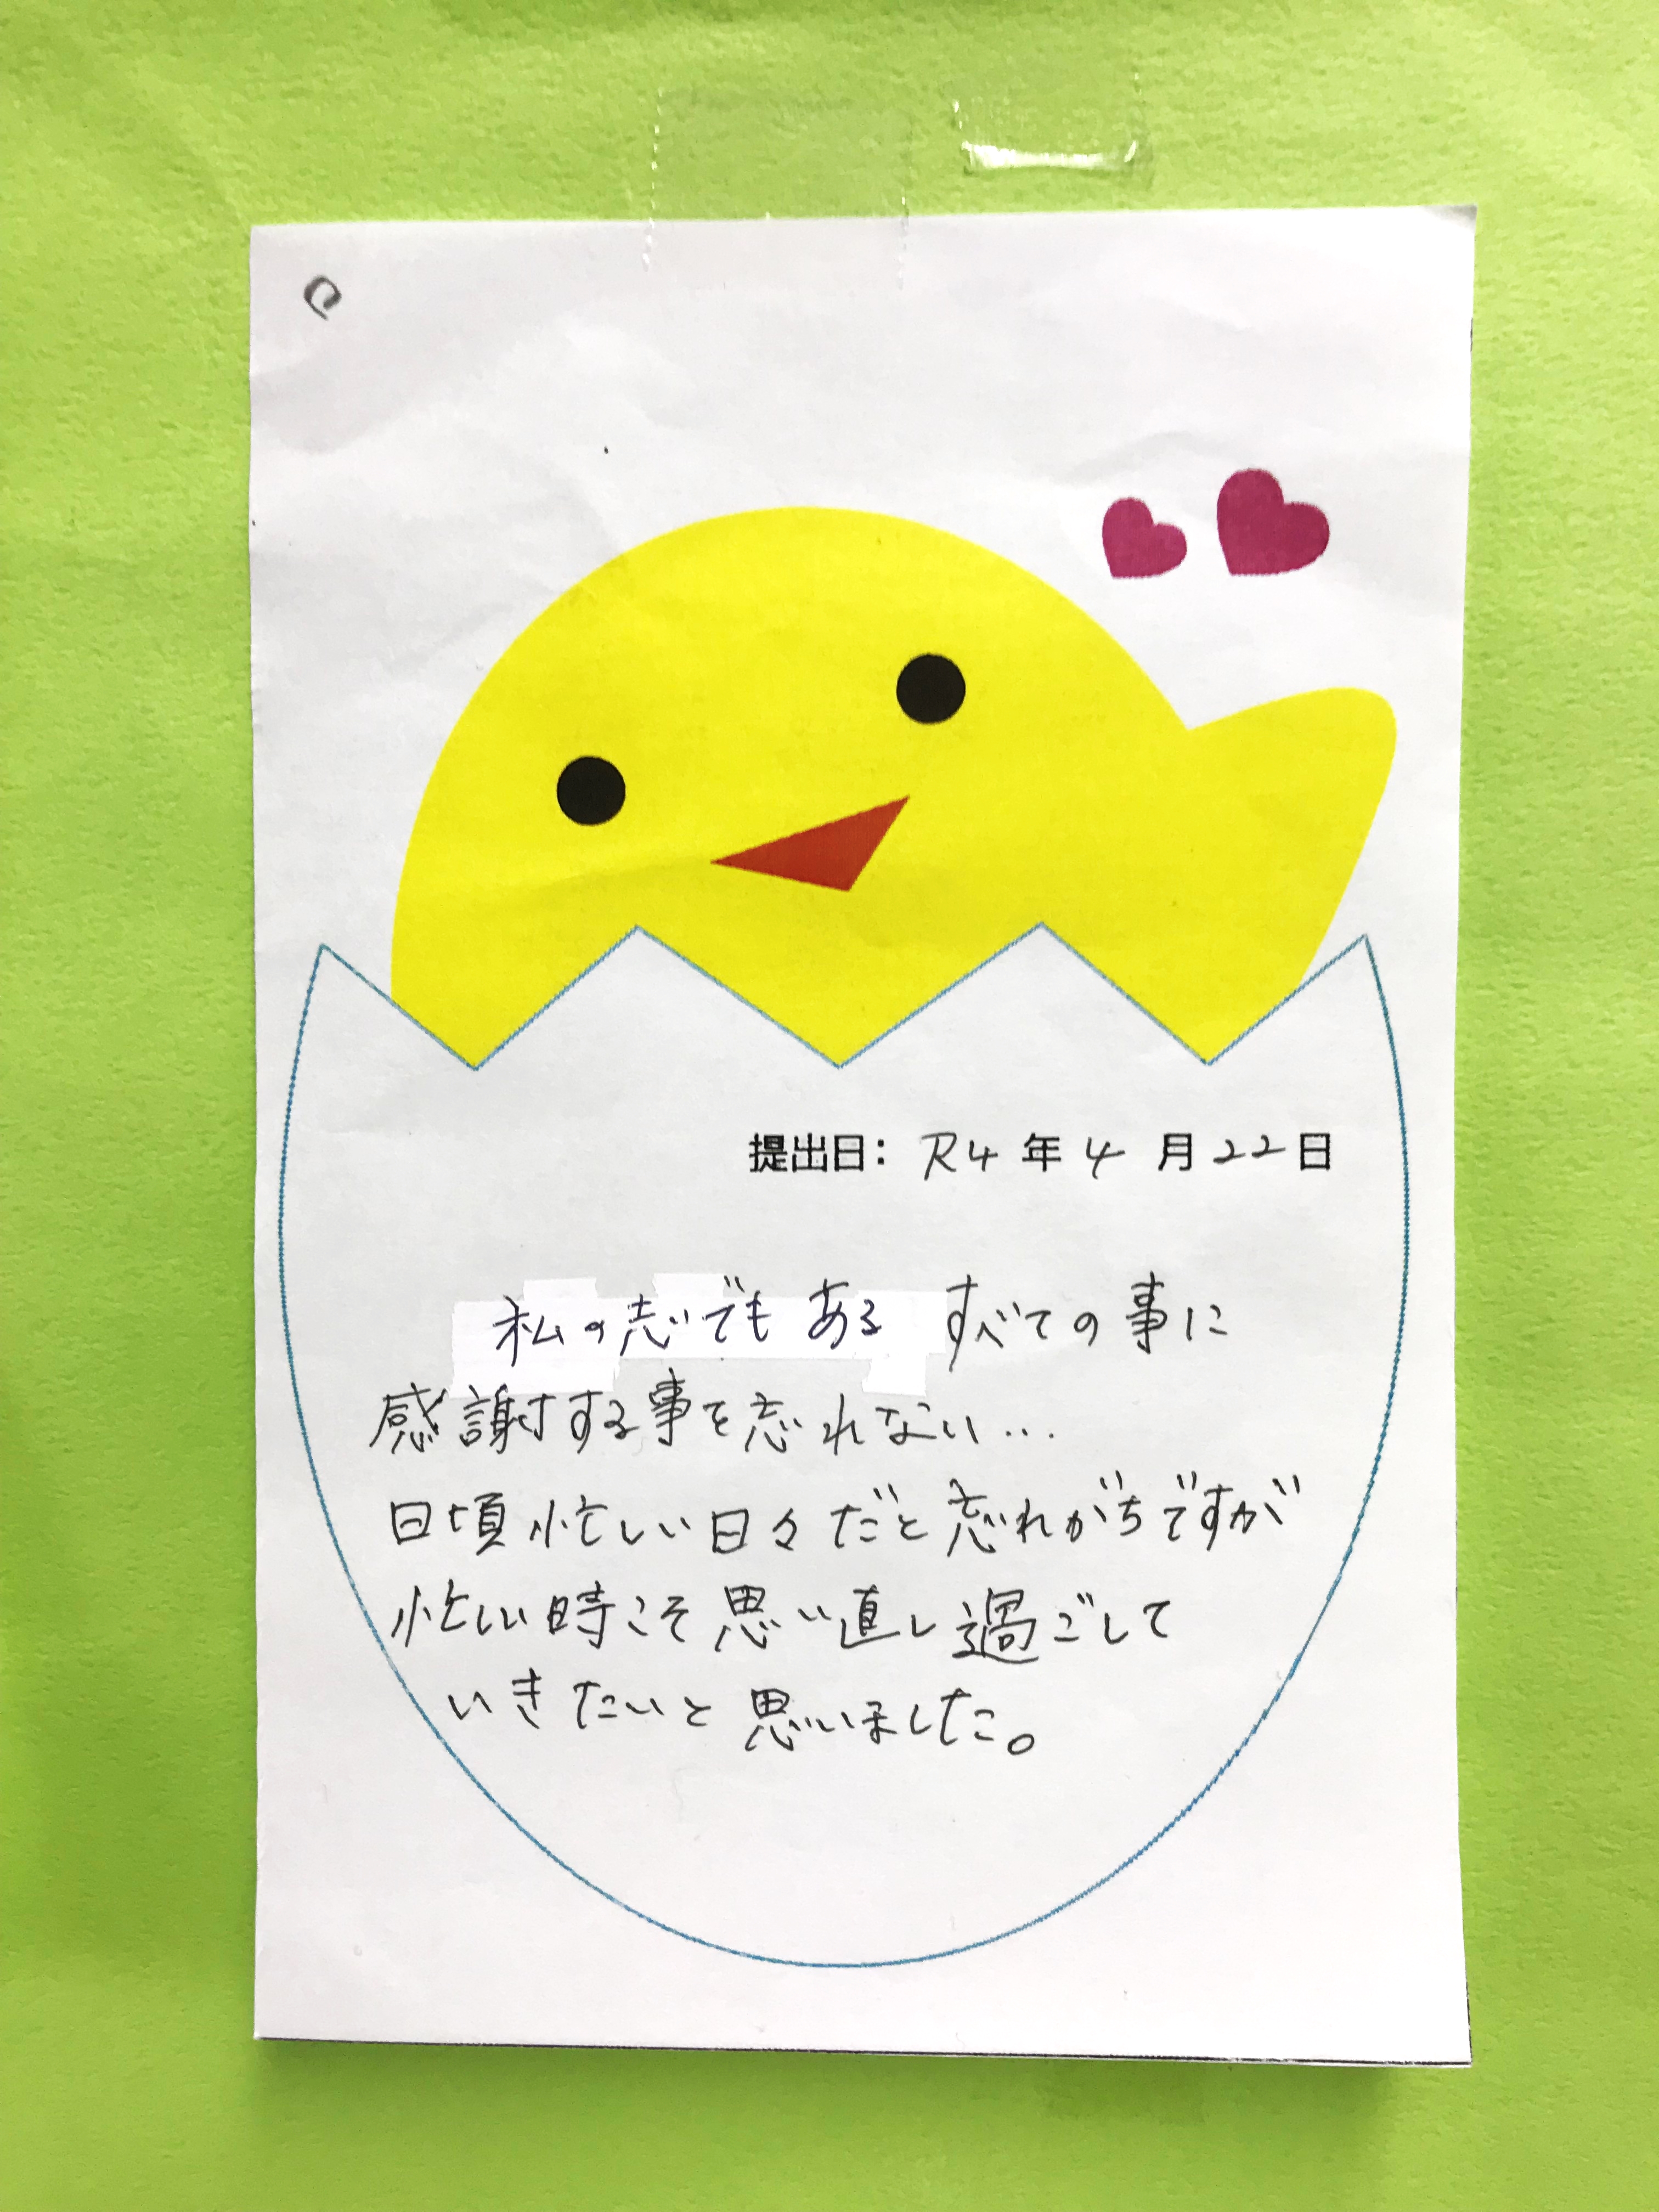 提出日: R4年4月22日
私の志でもある すべての事に
感謝する事を忘れない...
日頃忙しい日々だと忘れがちですが
忙しい時こそ思い直し過ごして
いきたいと思いました。